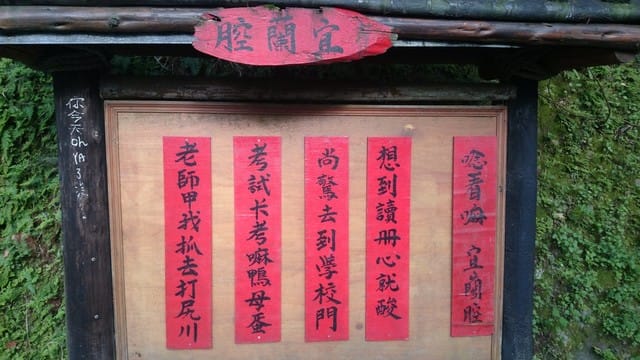 宜蘭腔
唸看 宜蘭腔
想到讀冊心就酸
尚驚去到學校門
考試卡考嘛鴨母蛋
老師甲我抓去打尻川
你今天Oh YA了